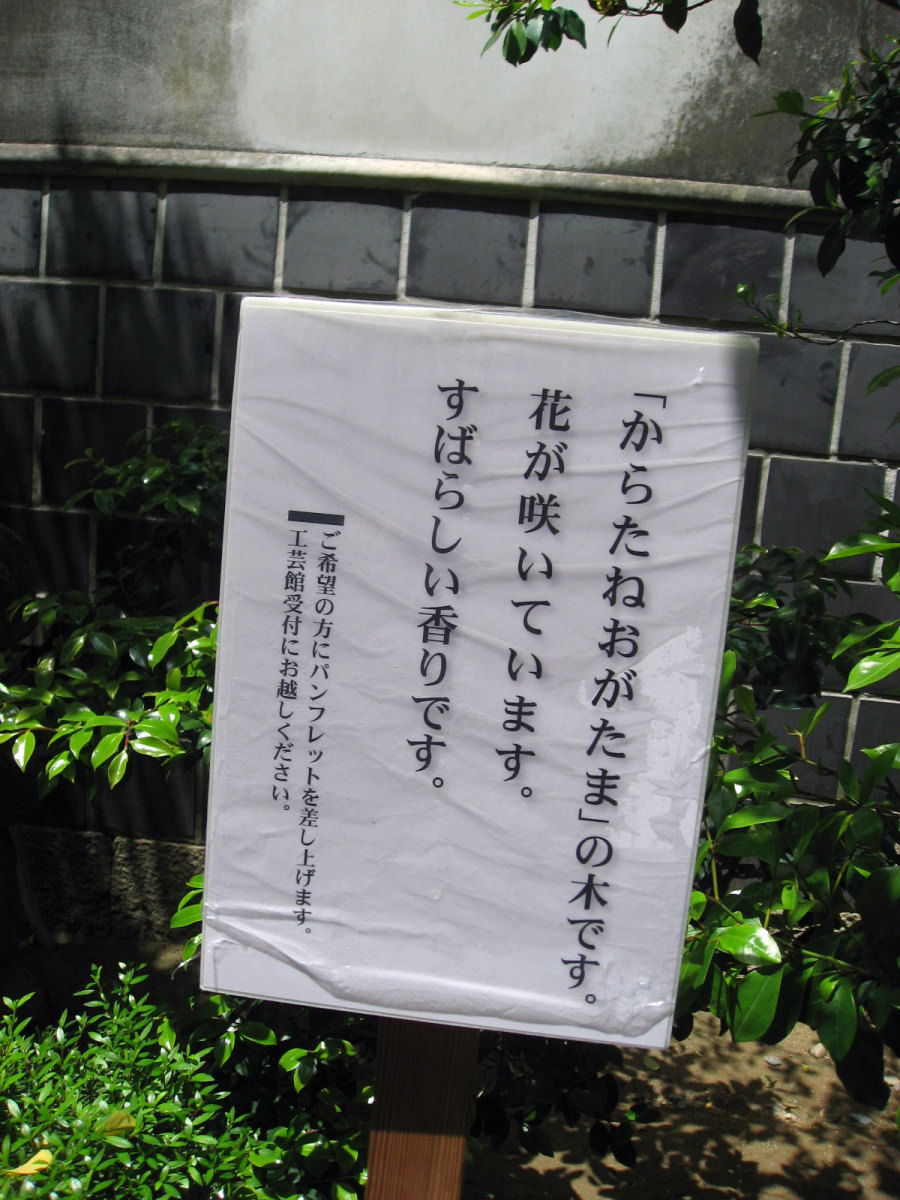 「からたねおがたま」の木です。
花が咲いています。
すばらしい香りです。
ご希望の方にパンフレットを差し上げます。
工芸館受付にお越しください。